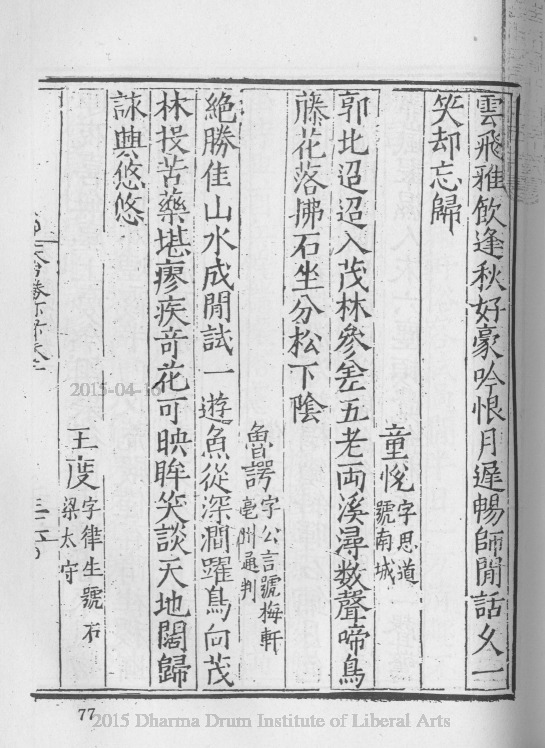 雲飛雅飲逢秋好豪吟恨月遲暢師閒話久一
笑却忘歸
童悅字思道號南城
郭北迢迢入茂林參差五老両溪潯数聲啼鳥
藤花落拂石坐分松下陰
魯諤字公言號梅軒亳州通判
絶勝佳山水成閒試一遊魚從深澗躍鳥向茂
林投苦藥堪瘳疾奇花可映眸笑談天地闊歸
詠興悠悠
王度字律生號石梁太守
77
2015-04-16
2015 Dharma Drum Institute of Liberal Arts